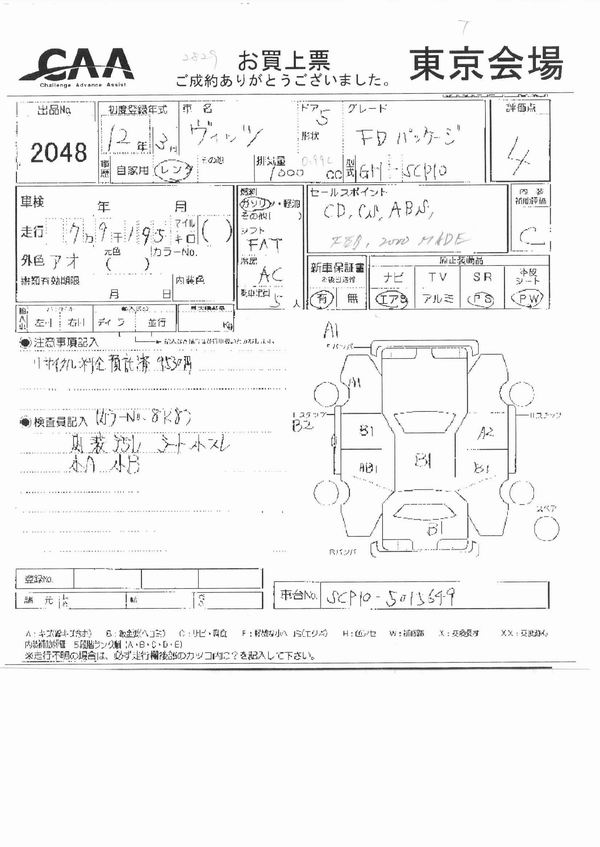 7
2829
CAA
Challenge Advance Assist
お買上票
ご成約ありがとうございました。
東京会場
出品No.
2048
初度登録年式
12年 3月
車歴
自家用 レンタ その他
車名
ヴィッツ
ドア 5
形状
グレード
FDパッケージ
排気量
1000 cc
型式
GH-SCP10
評価点
4
車検 年 月
走行 7万9千195
マイル
キロ
( )
外色 アオ
元色 ( )
カラーNo.
書類有効期限
月 日
内装色
燃料
ガソリン・軽油
その他( )
シフト
FAT
冷房
AC
乗車定員
5人
セールスポイント
CD, ABS,
2000 MADE
内装
補助評価
C
新車保証書
有 無
ナビ TV SR
エアB アルミ PS PW
革シート
左ハ 右ハ ディーラ 並行
Kg
●注意事項記入
リサイクル料金預託済 9530円
●検査員記入
カラーNo. 8K8
内装汚レ シート小スレ
小A 小B
A1
Fバンパ
A1
Lステップ
B2
B1
A2
Rステップ
AB1
B1
B1
B1
Rバンパ
スペア
登録No.
車台No. SCP10-5015649
諸元
A：キズ
W：補修跡
X：交換要す
XX：交換済み
内装補助評価 5段階ランク制（A・B・C・D・E）
※走行不明の場合は、必ず走行欄後部のカッコ内に？を記入して下さい。